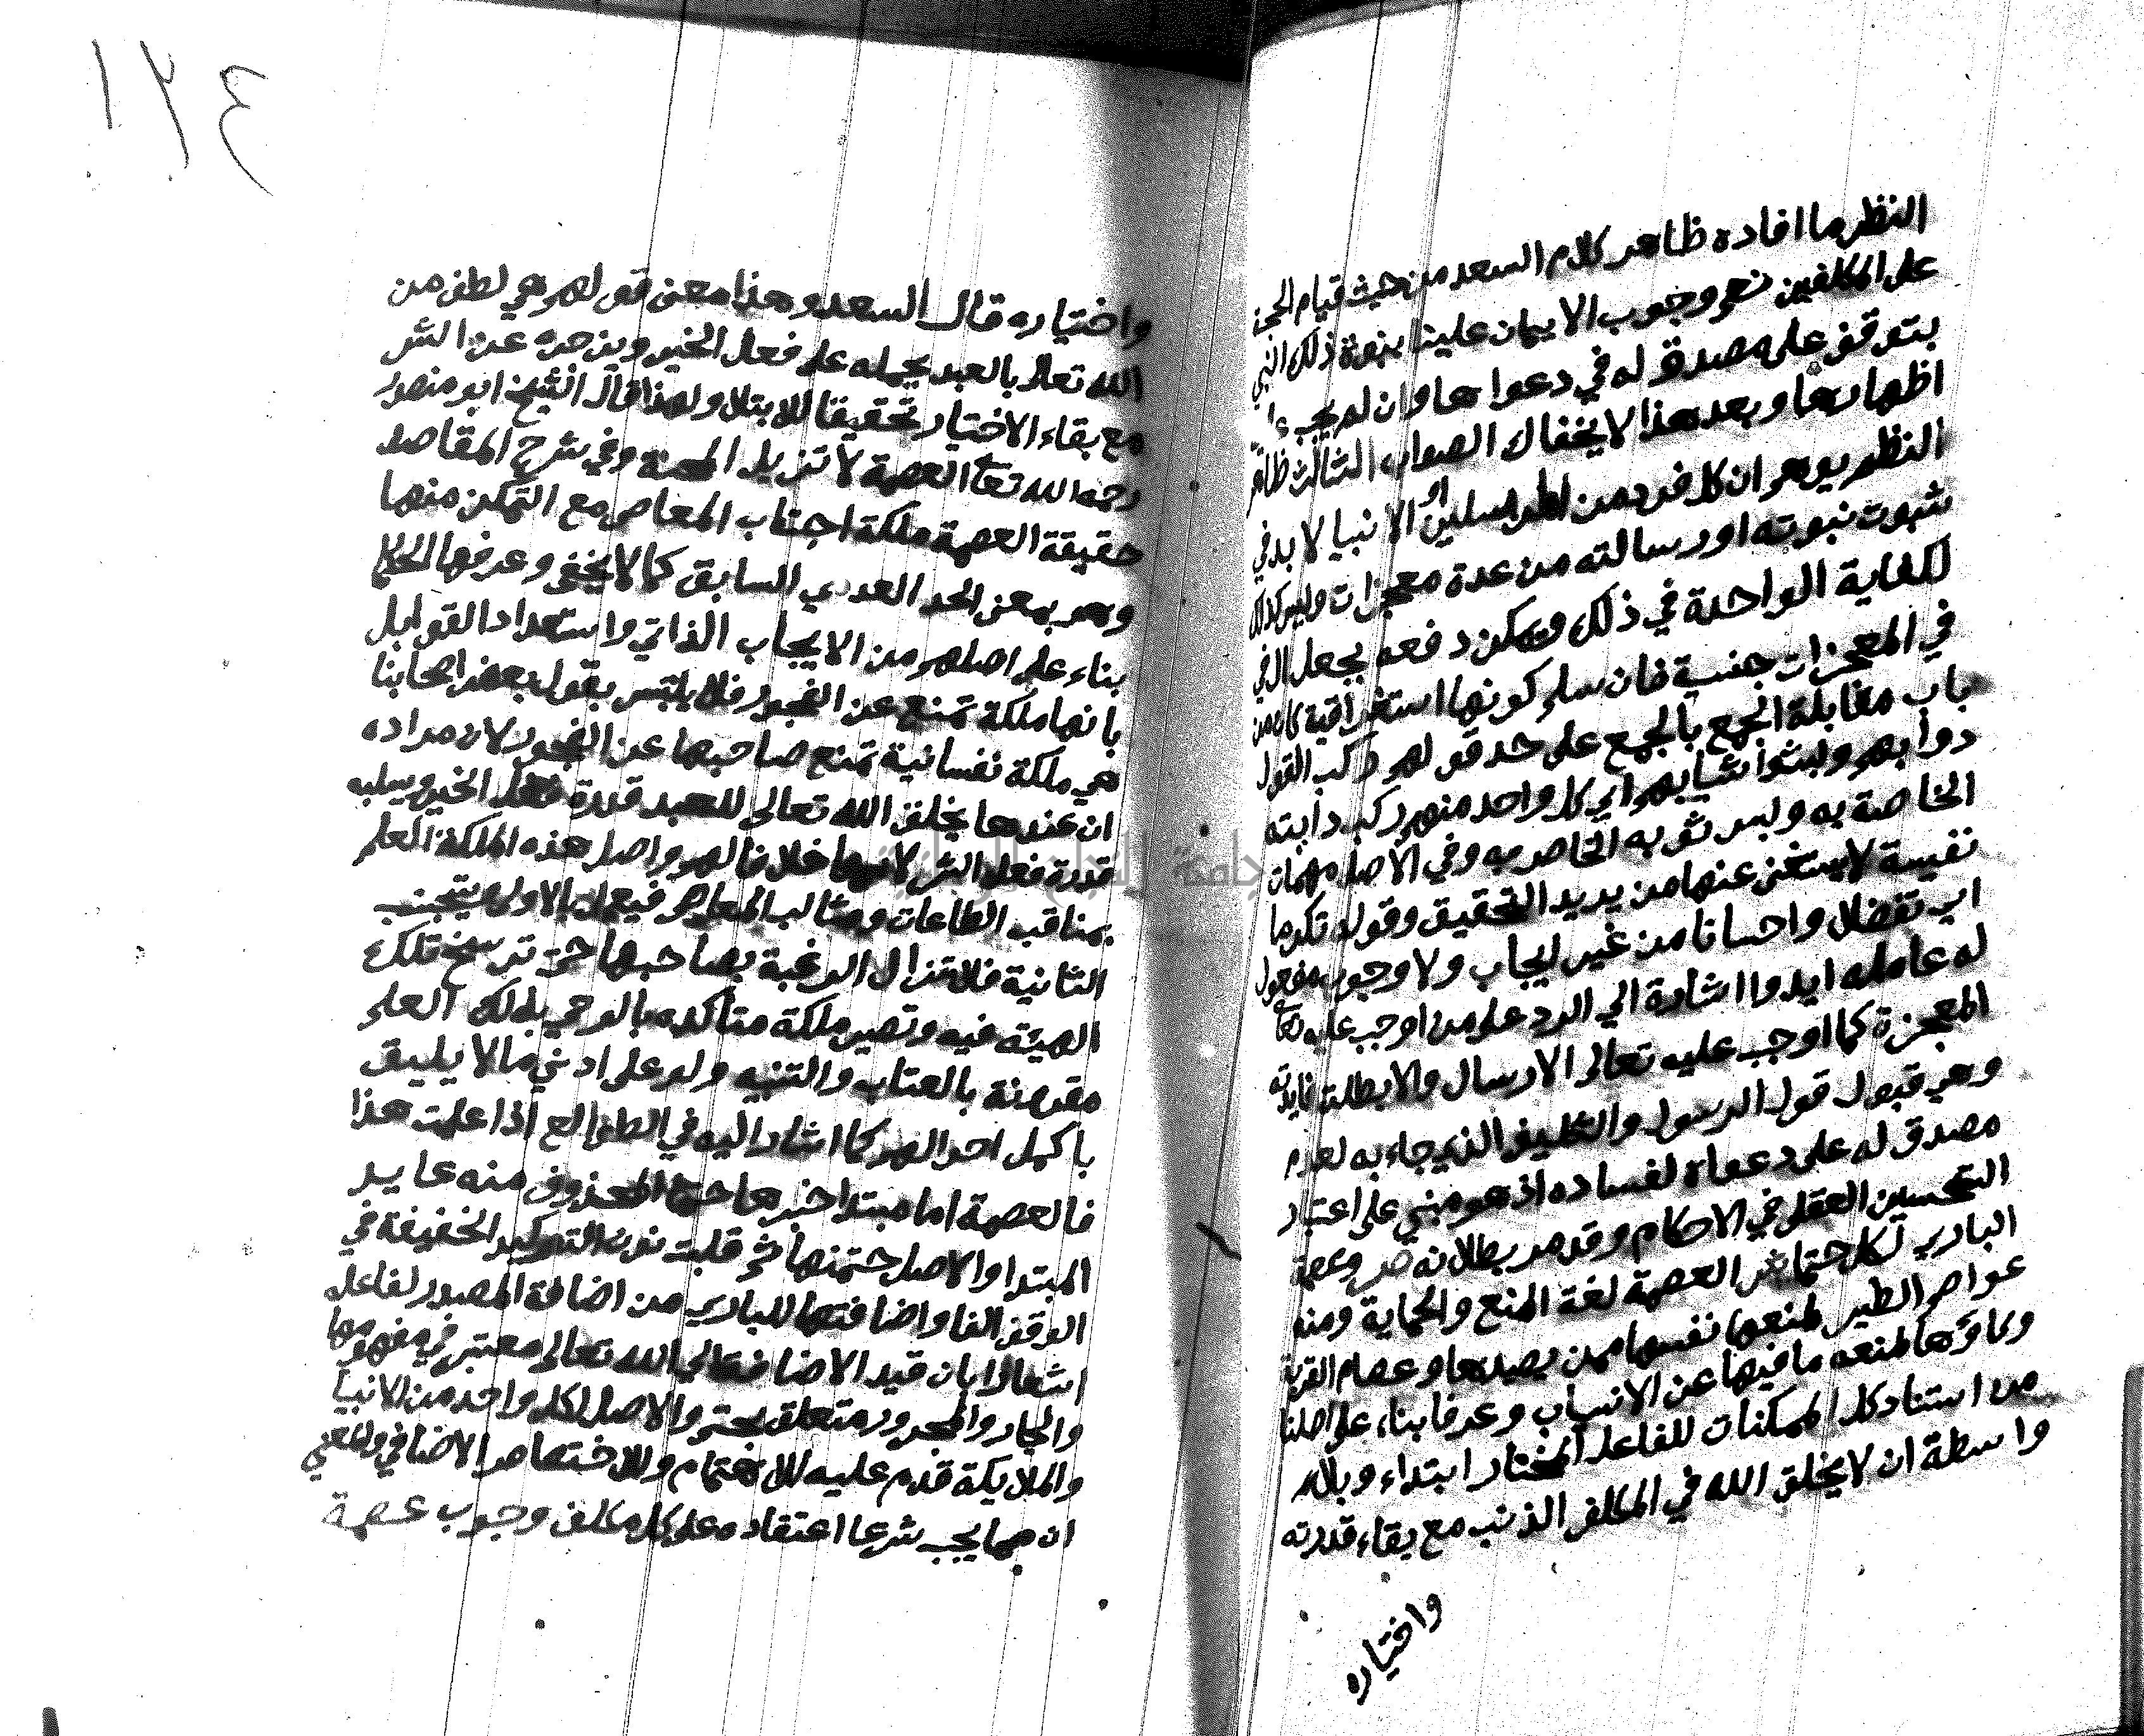 النظر ما افاده ظاهر كلام السعد من حيث قيام الحجة
على المكلفين نعم وجوب الايمان علينا بنبوة ذلك النبي
يتوقف على مصدق له في دعواها وان لم يجب
اظهارها وبعد هذا لا يخفاك الصواب الثالث ظاهر
النظم يوهم ان كل فرد من المرسلين او الانبيا لا بد في
ثبوت نبوته او رسالته من عدة معجزات وليس كذلك
لكفاية الواحدة في ذلك ويمكن دفعه بجعل ال في
في المعجزات جنسية فان سلم كونها استغراقية كان من
باب مقابلة الجمع بالجمع على حد قولهم ركب القوم
دوابهم ولبسوا ثيابهم اي كل واحد منهم ركب دابته
الخاصة به ولبس ثوبه الخاص به وفي الاصل مهمات
نفيسة لا يستغنى عنها من يريد التحقيق وقوله تكرما
اي تفضلا واحسانا من غير ايجاب ولا وجوب مفعول
له عامله ايدوا اشارة الي الرد على من اوجب عليه تعا
المعجزة كما اوجب عليه تعالى الارسال والا بطلت فايدته
وهي قبول قول الرسول والتكليف الذي جاء به لعدم
مصدق له على دعواه لفساده اذ هو مبني على اعتبار
التحسين العقلي في الاحكام وقد مر بطلانه ص وعصمة
الباري لكل حتما ش العصمة لغة المنع والحماية ومنه
عواصم الطير لمنعها نفسها ممن يصيدها وعصام القربة
وكاؤها لمنعه ما فيها عن الانسياب وعرفا بناء على اصلنا
من استناد كل الممكنات للفاعل المختار ابتداء وبلا
واسطة ان لا يخلق الله في المكلف الذنب مع بقاء قدرته
واختياره
٣٢١
واختياره قال السعد وهذا معنى قولهم هي لطف من
الله تعالى بالعبد يحمله على فعل الخير ويزجره عن الشر
مع بقاء الاختيار تحقيقا للابتلا ولهذا قال الشيخ ابو منصور
رحمه الله تعا العصمة لا تزيل المحنة وفي شرح المقاصد
حقيقة العصمة ملكة اجتناب المعاصي مع التمكن منها
وهو بمعنى الحد العدمي السابق كما لا يخفى وعرفها الحكما
بناء على اصلهم من الايجاب الذاتي واستعداد القوابل
بانها ملكة تمنع عن الفجور فلا يلتبس بقول بعض اصحابنا
هي ملكة نفسانية تمنع صاحبها عن الفجور لان مراده
ان عندها يخلق الله تعالى للعبد قدرة فعل الخير ويسلبه
قدرة فعل الشر لانها خلافا لهم واصل هذه الملكة العلم
بمناقب الطاعات ومثالب المعاصي فيعمل بالاولى ويتجنب
الثانية فلا تزال الرغبة بصاحبها حتى ترسخ تلك
الهيئة فيه وتصير ملكة متأكده بالوحي بذلك العلم
مقرونة بالعتاب والتنبيه ولو على ادني ما لا يليق
باكمل احوالهم كما اشار اليه في الطوالع اذا علمت هذا
فالعصمة اما مبتدا خبرها حتما المحذوف منه عايد
المبتدا والاصل حتمنها ثم قلبت نون التوكيد الخفيفة في
الوقف الفا واضافتها للباري من اضافة المصدر لفاعله
اشعارا بان قيد الاضافة الى الله تعالى معتبر في مفهومها
والجار والمجرور متعلق بحتم والاصل لكل واحد من الانبيا
والملايكة قدم عليه للاهتمام وللاختصاص الاضافي والمعني
ان مما يجب شرعا اعتقاده على كل مكلف وجوب عصمة